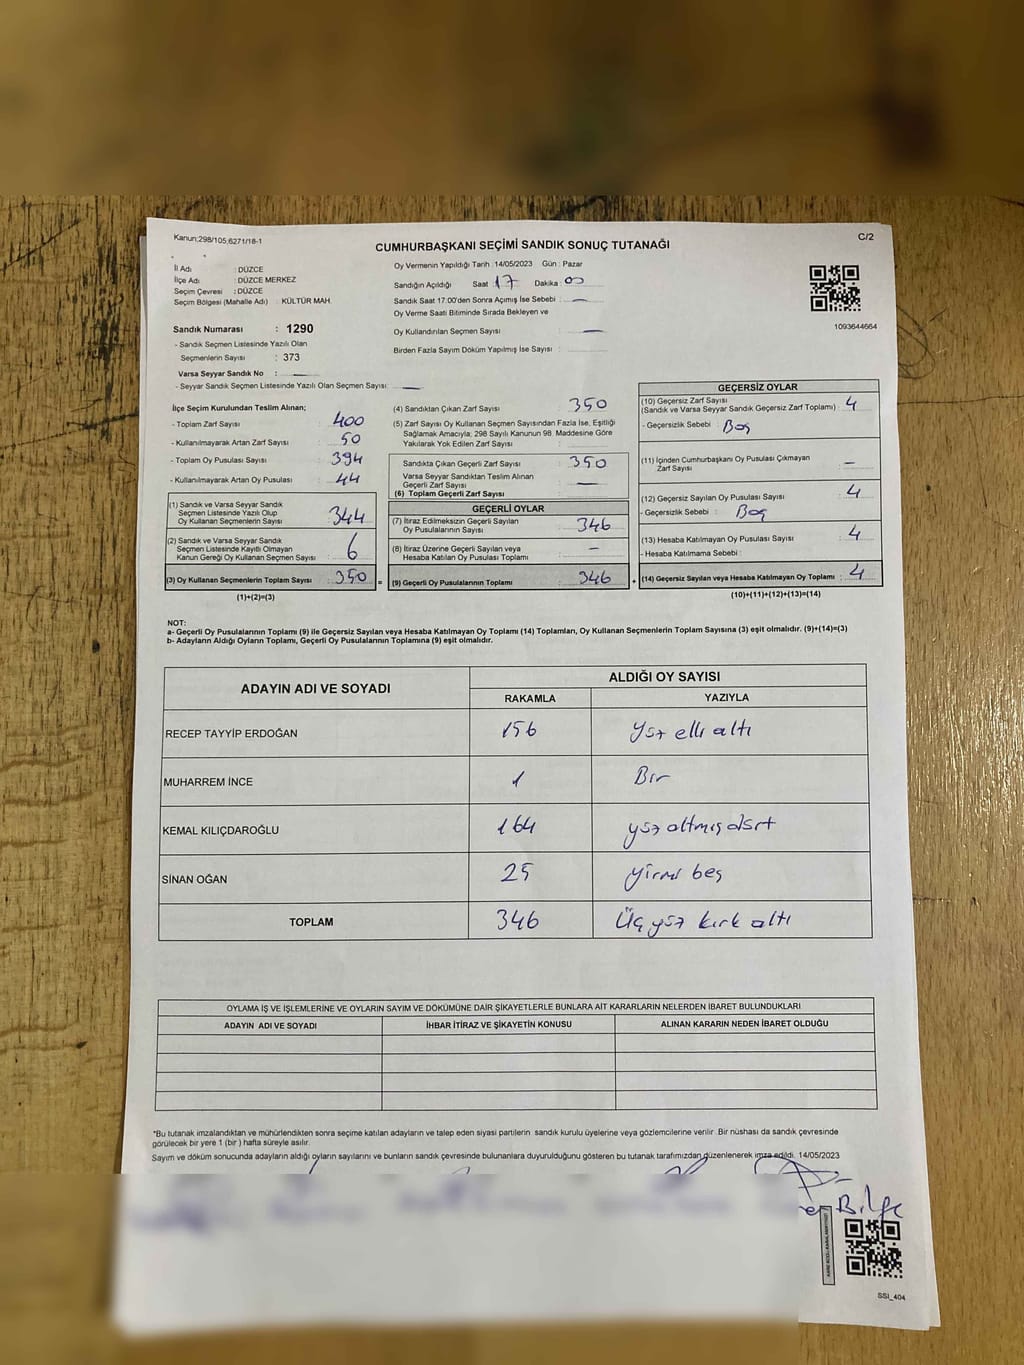 Kanun;298/105;6271/18-1
C/2
CUMHURBAŞKANI SEÇİMİ SANDIK SONUÇ TUTANAĞI
İl Adı : DÜZCE
İlçe Adı : DÜZCE MERKEZ
Seçim Çevresi : DÜZCE
Seçim Bölgesi (Mahalle Adı) : KÜLTÜR MAH.
Sandık Numarası : 1290
- Sandık Seçmen Listesinde Yazılı Olan
Seçmenlerin Sayısı : 373
Varsa Seyyar Sandık No : —
- Seyyar Sandık Seçmen Listesinde Yazılı Olan Seçmen Sayısı: —
Oy Vermenin Yapıldığı Tarih : 14/05/2023 Gün : Pazar
Sandığın Açıldığı Saat : 17 Dakika : 00
Sandık Saat 17:00'den Sonra Açımış İse Sebebi : —
Oy Verme Saati Bitiminde Sırada Bekleyen ve
Oy Kullandırılan Seçmen Sayısı : —
Birden Fazla Sayım Döküm Yapılmış İse Sayısı :
1093644664
İlçe Seçim Kurulundan Teslim Alınan;
- Toplam Zarf Sayısı : 400
- Kullanılmayarak Artan Zarf Sayısı : 50
- Toplam Oy Pusulası Sayısı : 394
- Kullanılmayarak Artan Oy Pusulası : 44
(1) Sandık ve Varsa Seyyar Sandık
Seçmen Listesinde Yazılı Olup
Oy Kullanan Seçmenlerin Sayısı : 344
(2) Sandık ve Varsa Seyyar Sandık
Seçmen Listesinde Kayıtlı Olmayan
Kanun Gereği Oy Kullanan Seçmen Sayısı : 6
(3) Oy Kullanan Seçmenlerin Toplam Sayısı : 350 =
(1)+(2)=(3)
(4) Sandıktan Çıkan Zarf Sayısı : 350
(5) Zarf Sayısı Oy Kullanan Seçmen Sayısından Fazla İse, Eşitliği
Sağlamak Amacıyla; 298 Sayılı Kanunun 98. Maddesine Göre
Yakılarak Yok Edilen Zarf Sayısı :
Sandıkta Çıkan Geçerli Zarf Sayısı : 350
Varsa Seyyar Sandıktan Teslim Alınan
Geçerli Zarf Sayısı : —
(6) Toplam Geçerli Zarf Sayısı :
GEÇERLİ OYLAR
(7) İtiraz Edilmeksizin Geçerli Sayılan
Oy Pusulalarının Sayısı : 346
(8) İtiraz Üzerine Geçerli Sayılan veya
Hesaba Katılan Oy Pusulası Toplamı : —
(9) Geçerli Oy Pusulalarının Toplamı : 346 +
GEÇERSİZ OYLAR
(10) Geçersiz Zarf Sayısı
(Sandık ve Varsa Seyyar Sandık Geçersiz Zarf Toplamı) : 4
- Geçersizlik Sebebi : Boş
(11) İçinden Cumhurbaşkanı Oy Pusulası Çıkmayan
Zarf Sayısı : —
(12) Geçersiz Sayılan Oy Pusulası Sayısı : 4
- Geçersizlik Sebebi : Boş
(13) Hesaba Katılmayan Oy Pusulası Sayısı : 4
- Hesaba Katılmama Sebebi :
(14) Geçersiz Sayılan veya Hesaba Katılmayan Oy Toplamı : 4
(10)+(11)+(12)+(13)=(14)
NOT:
a- Geçerli Oy Pusulalarının Toplamı (9) ile Geçersiz Sayılan veya Hesaba Katılmayan Oy Toplamı (14) Toplamları, Oy Kullanan Seçmenlerin Toplam Sayısına (3) eşit olmalıdır. (9)+(14)=(3)
b- Adayların Aldığı Oyların Toplamı, Geçerli Oy Pusulalarının Toplamına (9) eşit olmalıdır.
ADAYIN ADI VE SOYADI ALDIĞI OY SAYISI
RAKAMLA YAZIYLA
RECEP TAYYİP ERDOĞAN 156 yüz elli altı
MUHARREM İNCE 1 Bir
KEMAL KILIÇDAROĞLU 164 yüz altmış dört
SİNAN OĞAN 25 yirmi beş
TOPLAM 346 Üç yüz kırk altı
OYLAMA İŞ VE İŞLEMLERİNE VE OYLARIN SAYIM VE DÖKÜMÜNE DAİR ŞİKAYETLERLE BUNLARA AİT KARARLARIN NELERDEN İBARET BULUNDUKLARI
ADAYIN ADI VE SOYADI İHBAR İTİRAZ VE ŞİKAYETİN KONUSU ALINAN KARARIN NEDEN İBARET OLDUĞU
*Bu tutanak imzalandıktan ve mühürlendikten sonra seçime katılan adayların ve talep eden siyasi partilerin sandık kurulu üyelerine veya gözlemcilerine verilir. Bir nüshası da sandık çevresinde
görülecek bir yere 1 (bir) hafta süreyle asılır.
Sayım ve döküm sonucunda adayların aldığı oyların sayılarını ve bunların sandık çevresinde bulunanlara duyurulduğunu gösteren bu tutanak tarafımızdan düzenlenerek imza edildi. 14/05/2023
Bilge
SSI_404